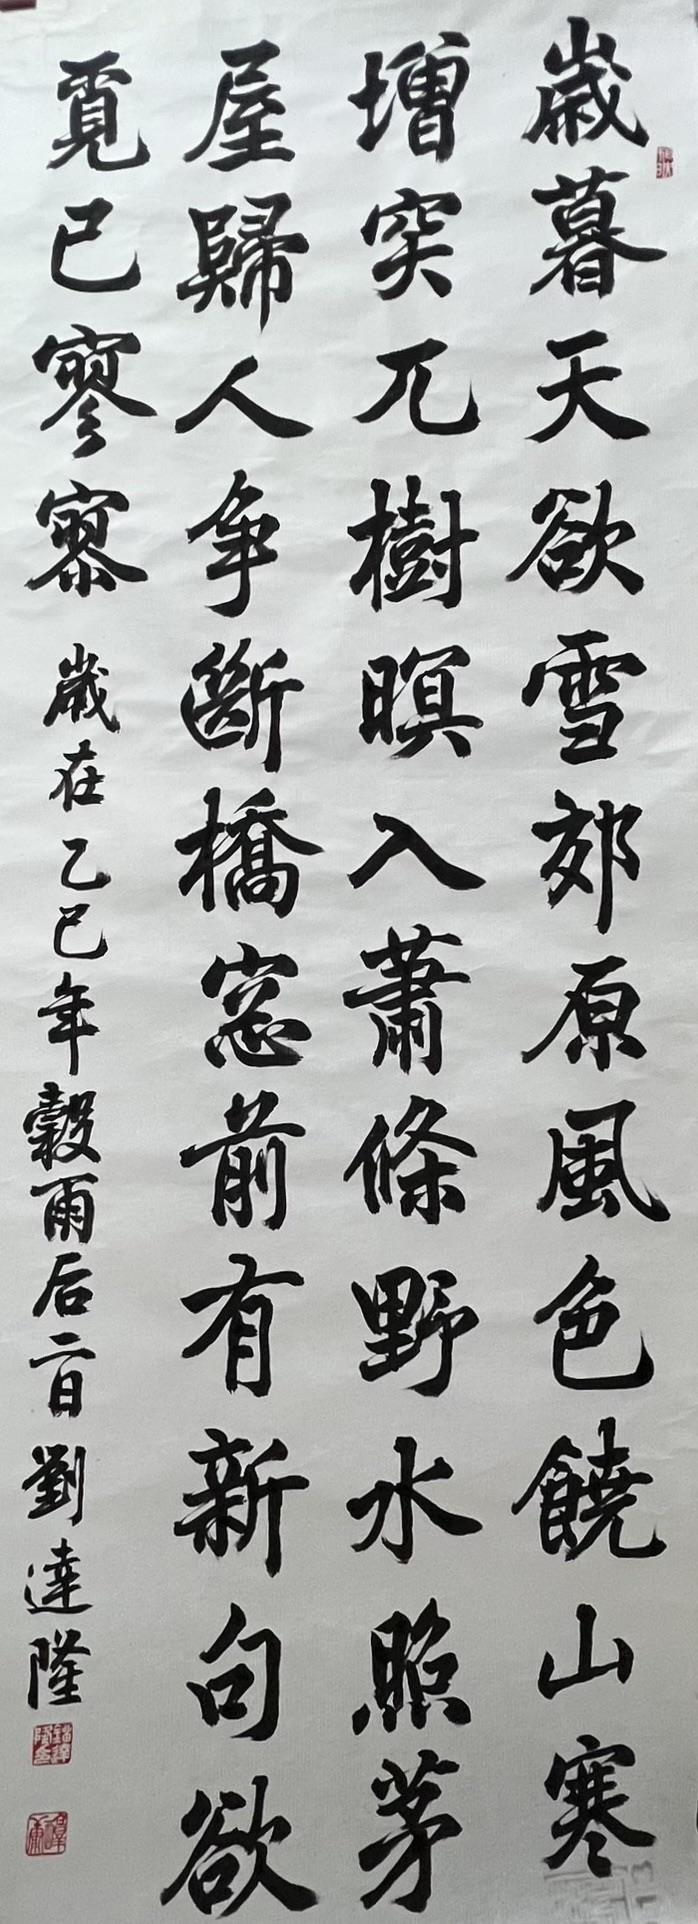 歲暮天欲雪郊原風色饒山寒
增突兀樹暝入蕭條野水照茅
屋歸人争斷橋窓前有新句欲
覓已寥寥
歲在乙巳年穀雨后二日劉達隆